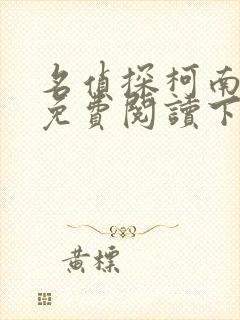 名偵探柯南
免費閱讀下
黃標